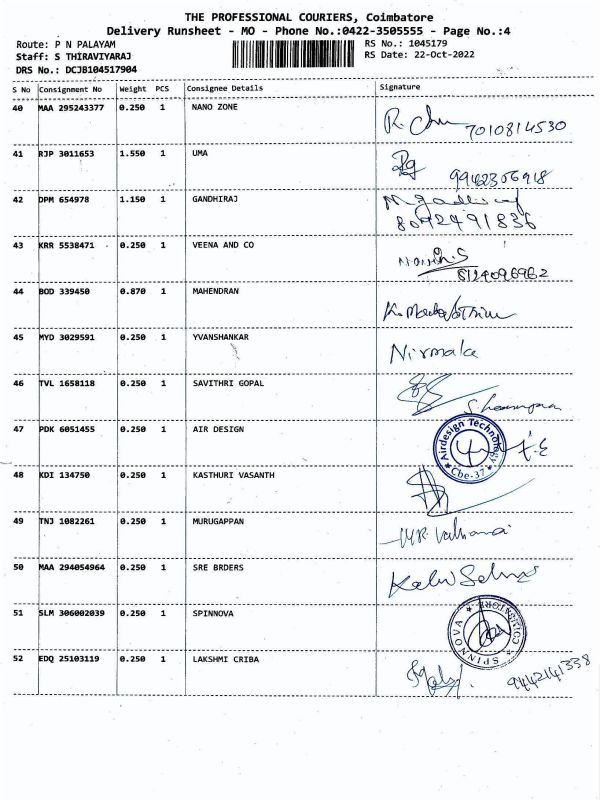 THE PROFESSIONAL COURIERS, Coimbatore
Delivery Runsheet - MO - Phone No.:0422-3505555 - Page No.:4
Route: P N PALAYAM RS No.: 1045179
Staff: S THIRAVIYARAJ RS Date: 22-Oct-2022
DRS No.: DCJB104517904
S No Consignment No Weight PCS Consignee Details Signature
40 MAA 295243377 0.250 1 NANO ZONE
7010814530
41 RJP 3011653 1.550 1 UMA
9942306918
42 DPM 654978 1.150 1 GANDHIRAJ
8072491836
43 KRR 5538471 0.250 1 VEENA AND CO
8124096962
44 BOD 339450 0.870 1 MAHENDRAN
45 MYD 3029591 0.250 1 YVANSHANKAR
Nirmala
46 TVL 1658118 0.250 1 SAVITHRI GOPAL
47 PDK 6051455 0.250 1 AIR DESIGN
Airdesign Technology
Cbe-37
48 KDI 134750 0.250 1 KASTHURI VASANTH
49 TNJ 1082261 0.250 1 MURUGAPPAN
50 MAA 294054964 0.250 1 SRE BRDERS
51 SLM 306002039 0.250 1 SPINNOVA
SPINNOVA COIMBATORE
52 EDQ 25103119 0.250 1 LAKSHMI CRIBA
9442141338